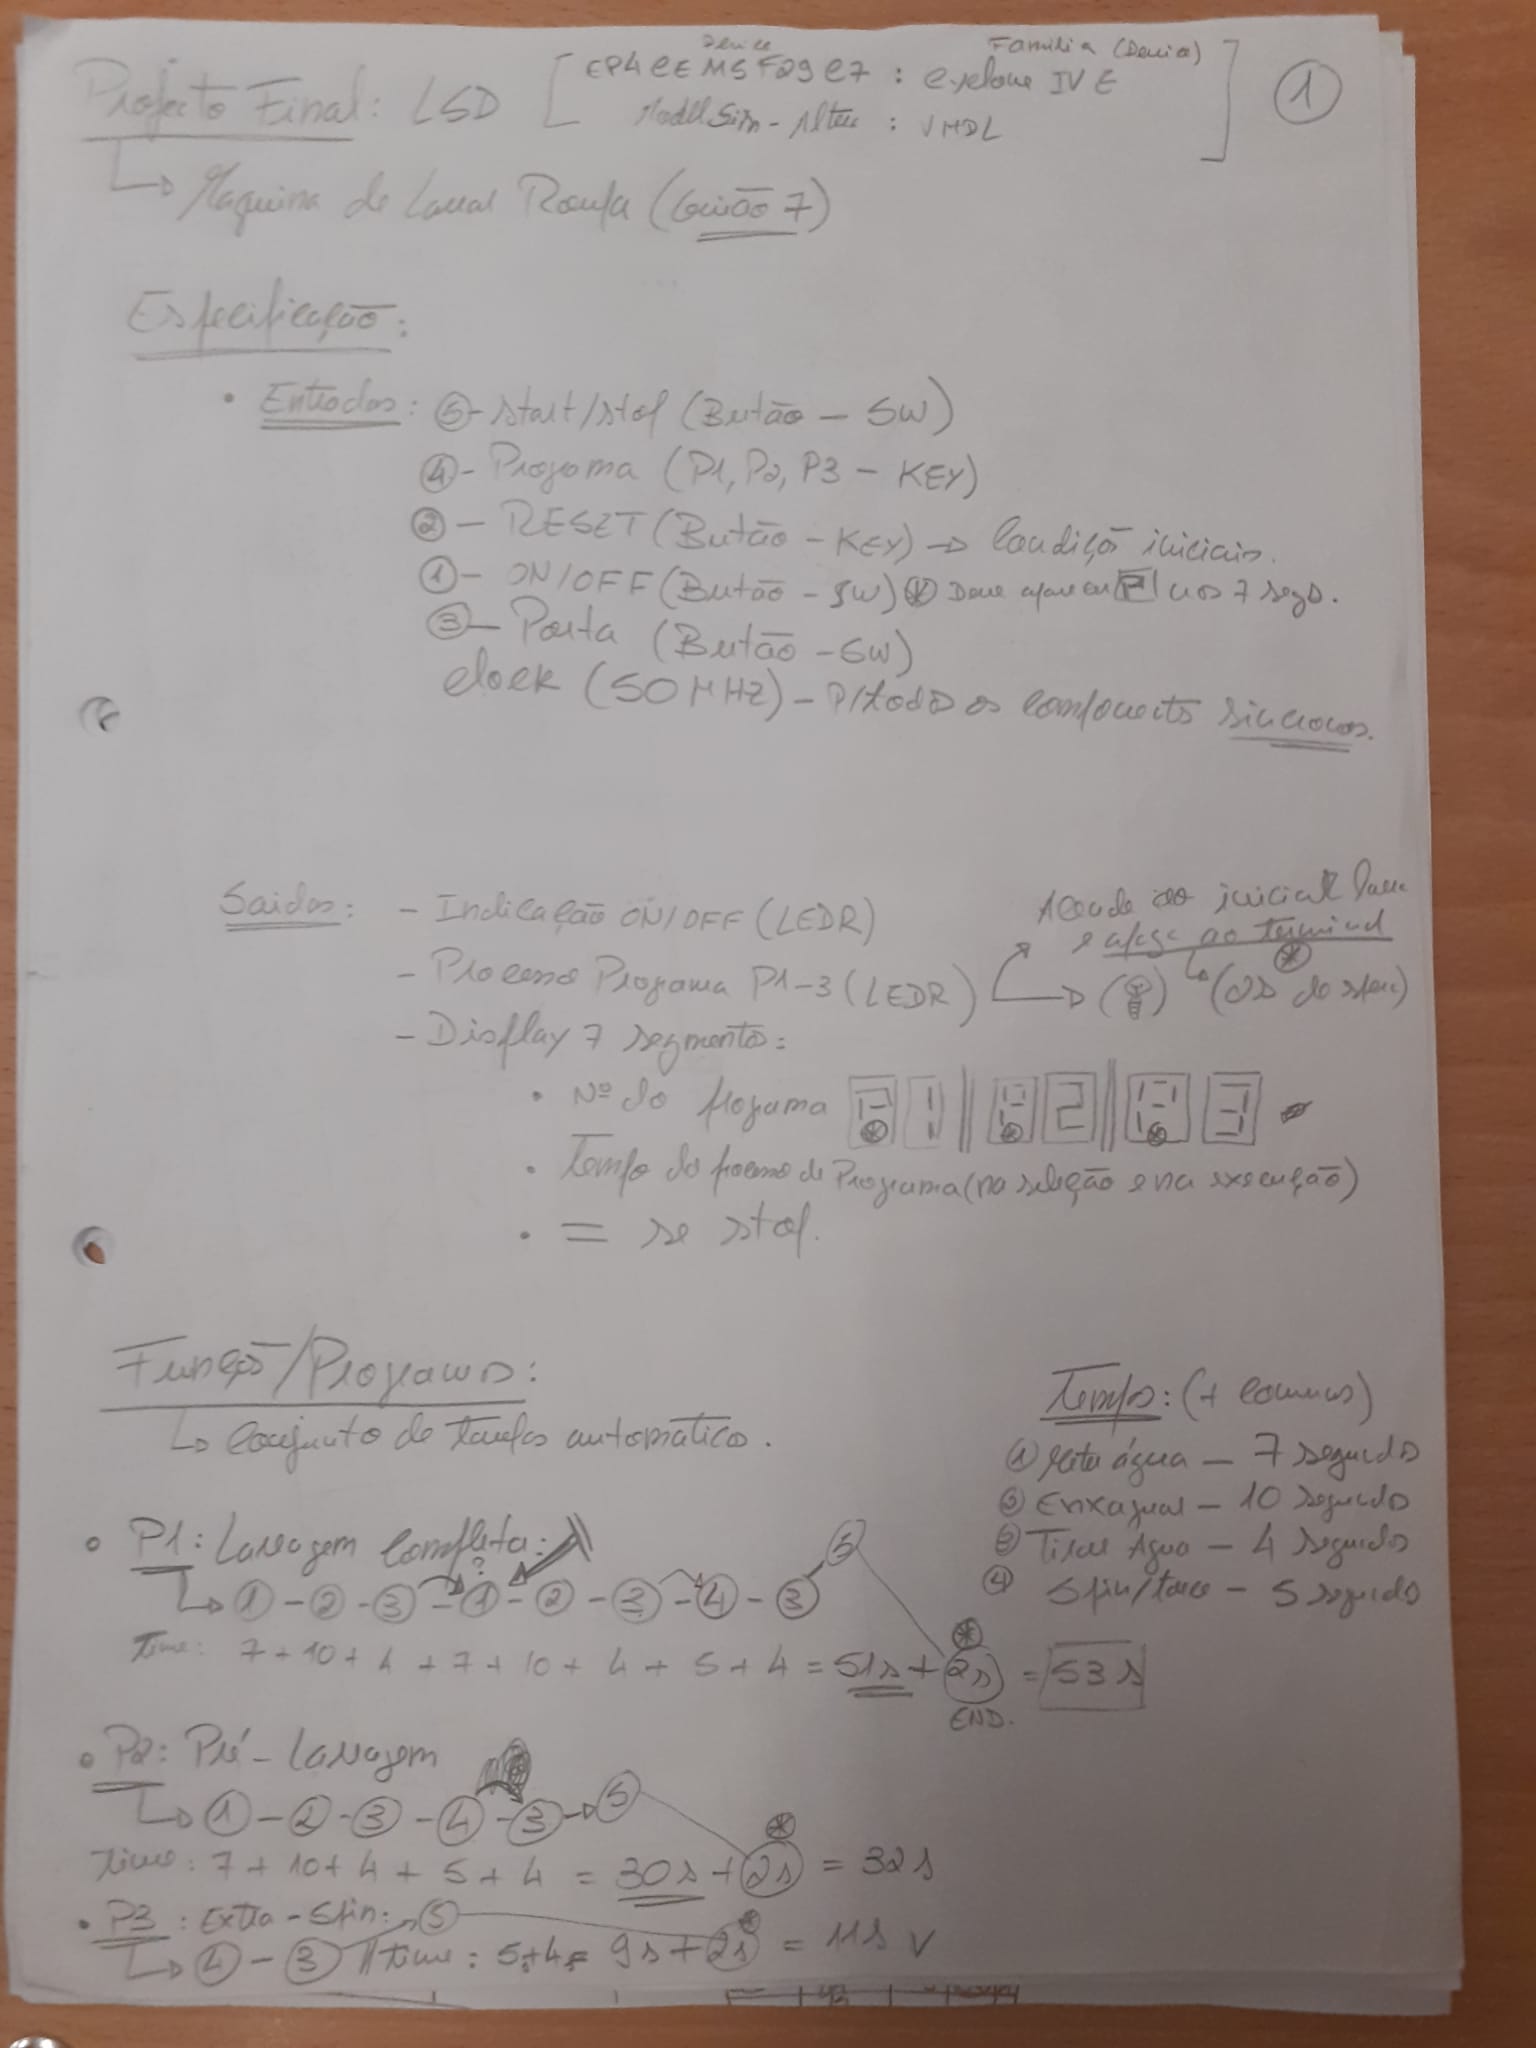 Device
Familia (Device)
Projecto Final: LSD [ EP4CE M5 F29C7 : Cyclone IV E ] ①
ModelSim - Altera : VHDL
↳ Maquina de Lavar Roupa (Guião 7)
Especificação:
• Entradas: ⑤ - start/stop (Butão - SW)
④ - Programa (P1, P2, P3 - KEY)
② - RESET (Butão - KEY) → Condiçõ iniciais.
① - ON/OFF (Butão - SW) ⊛ Deve aparecer P nos 7 segs.
③ - Porta (Butão - SW)
clock (50 MHz) - P/todos os componentes sincronos.
Saidas: - Indicação ON/OFF (LEDR)
Acende ao inicial
e apaga ao terminal
- Processo Programa P1-3 (LEDR) → (2s do )
- Display 7 segmentos:
• Nº do programa P1 || P2 || P3
• Tempo do processo de Programa (na seleção e na execução)
• = se stop.
Funçõ/Programas:
↳ Conjunto de tarefas automatico.
Tempo: (+ comuns)
① Meter água - 7 segundos
② Enxaguar - 10 segundos
③ Tirar Água - 4 segundos
④ Spin/ - 5 segundos
• P1: Lavagem Completa:
?
↳ ① - ② - ③ - ① - ② - ③ - ④ - ③ ⑤
Time: 7 + 10 + 4 + 7 + 10 + 4 + 5 + 4 = 51s + 2s = 53s
END.
• P2: Pré-Lavagem
↳ ① - ② - ③ - ④ - ③ → ⑤
Time: 7 + 10 + 4 + 5 + 4 = 30s + 2s = 32s
• P3: Extra-Spin: ⑤
↳ ④ - ③ // time: 5+4= 9s + 2s = 11s v